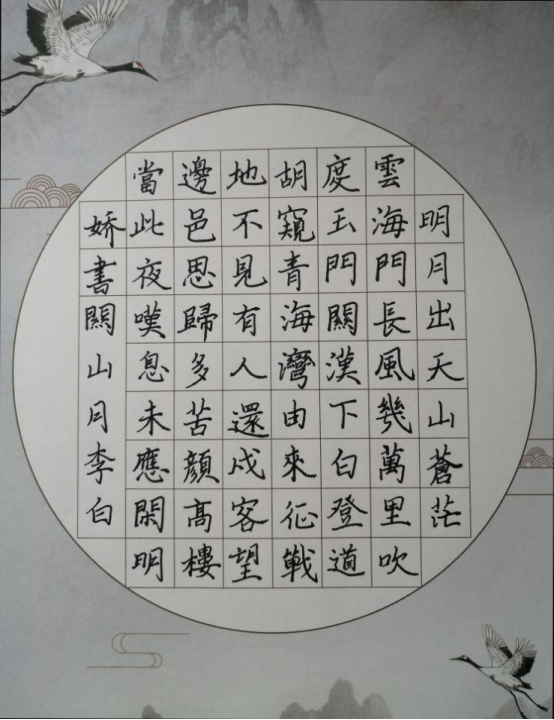 明月出天山蒼茫
雲海門長風幾萬里吹
度玉門關漢下白登道
胡窺青海灣由來征戰
地不見有人還戍客望
邊邑思歸多苦顏高樓
當此夜嘆息未應閑明
嬌書關山月李白